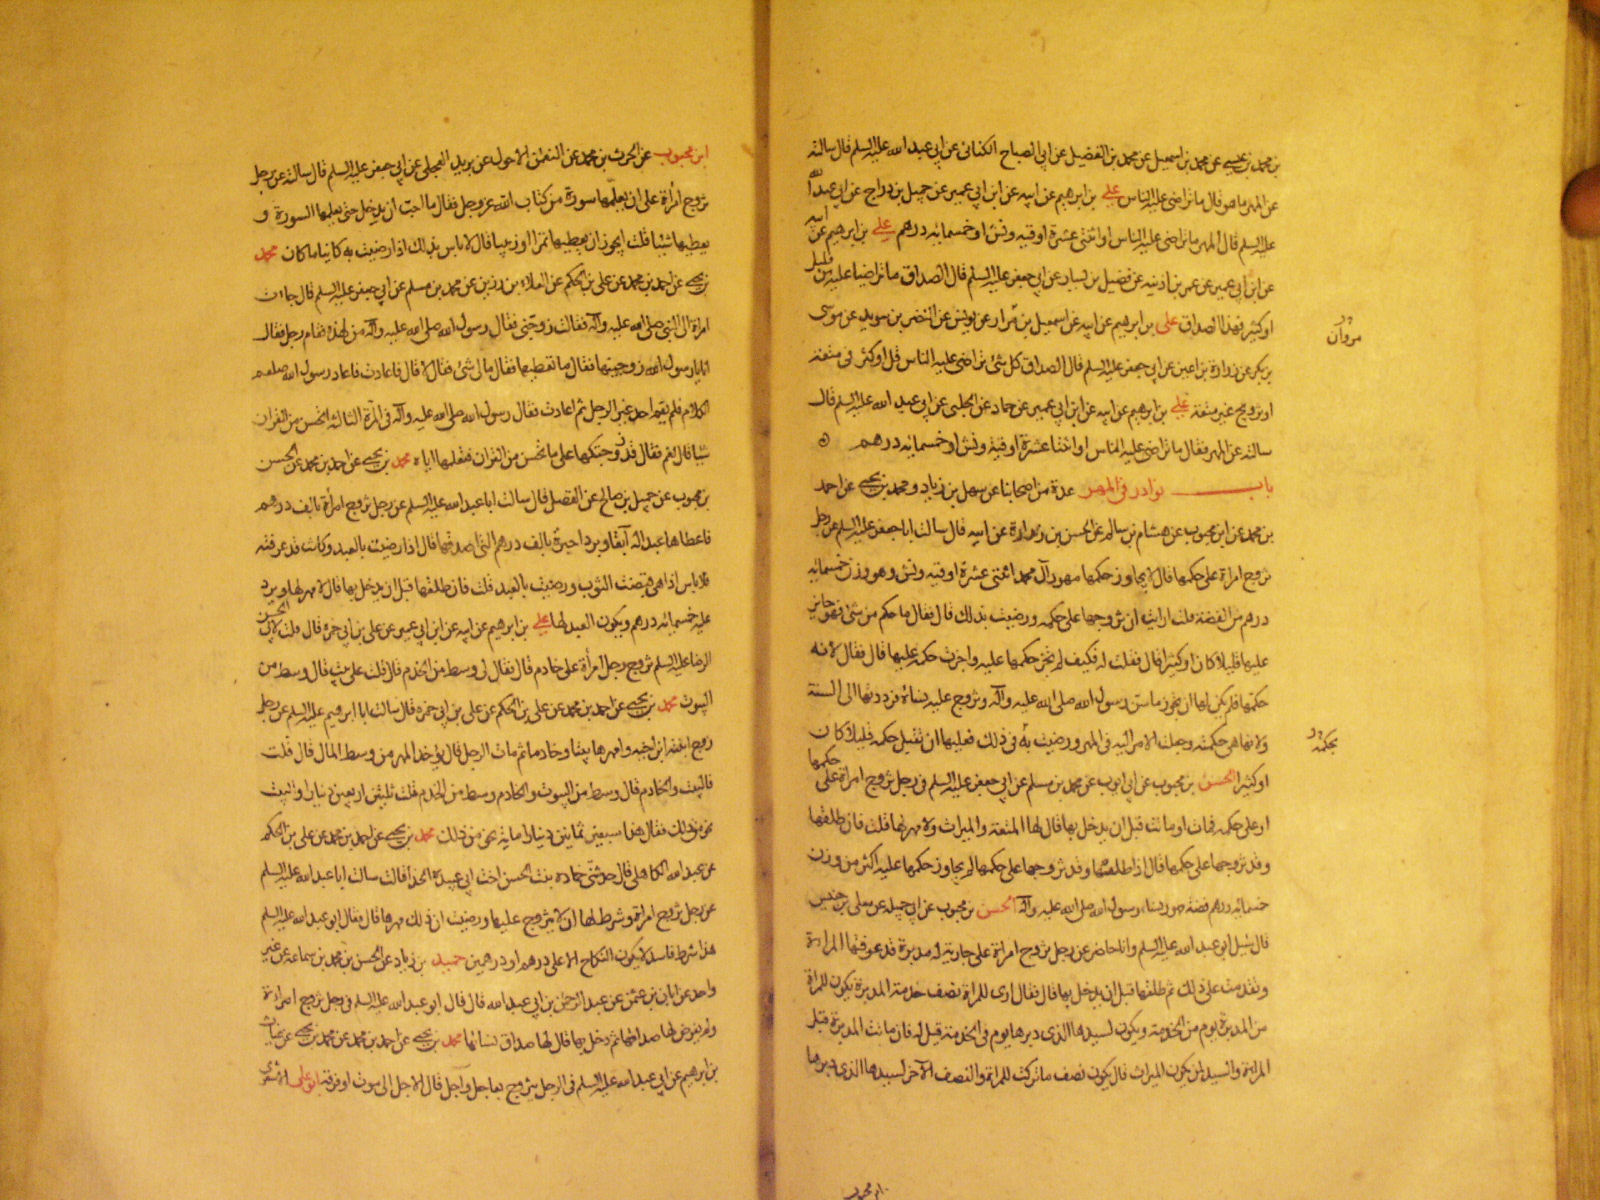 بن محمد بن يحيى عن محمد بن اسمعيل عن محمد بن الفضيل عن ابى الصباح الكنانى عن ابى عبد الله عليه السلم قال سالته
عن المهر ما هو قال ما تراضى عليه الناس على بن ابرهيم عن ابيه عن ابن ابى عمير عن جميل بن دراج عن ابى عبد الله
عليه السلم قال المهر ما تراضى عليه الناس او اثنتى عشرة اوقية ونش او خمسمائه درهم على بن ابرهيم عن ابيه
عن ابن ابى عمير عن عمر بن اذينه عن فضيل بن يسار عن ابى جعفر عليه السلم قال الصداق ما تراضيا عليه من قليل
او كثير فهذا الصداق على بن ابرهيم عن ابيه عن اسمعيل بن مرار عن يونس عن النضر بن سويد عن موسى
مروان
بن بكر عن زرارة بن اعين عن ابى جعفر عليه السلم قال الصداق كل شئ تراضى عليه الناس قل او كثر فى متعة
او تزويج غير متعة على بن ابرهيم عن ابيه عن ابن ابى عمير عن حماد عن الحلبى عن ابى عبد الله عليه السلم قال
سالته عن المهر فقال ما تراضى عليه الناس او اثنتا عشرة اوقية ونش او خمسمائه درهم
باب نوادر فى المهر عدة من اصحابنا عن سهل بن زياد ومحمد بن يحيى عن احمد
بن محمد عن ابن محبوب عن هشام بن سالم عن الحسن بن زرارة عن ابيه قال سالت ابا جعفر عليه السلم عن رجل
تزوج امراة على حكمها قال لا يجاوز حكمها مهور آل محمد اثنتى عشرة اوقية ونش وهو وزن خمسمائه
درهم من الفضة قلت ارايت ان تزوجها على حكمه ورضيت بذلك قال فقال ما حكم من شئ فهو جايز
عليها قليلا كان او كثيرا قال فقلت له فكيف لم تجز حكمها عليه واجزت حكمه عليها قال فقال لانه
حكمها فلم يكن لها ان تجوز ما سن رسول الله صلى الله عليه وآله وتزوج عليه نساءه فرددتها الى السنة
ولانها هى حكمته وجعلت الامر اليه فى المهر ورضيت به فى ذلك فعليها ان تقبل حكمه قليلا كان
بحكمه
او كثيرا الحسن بن محبوب عن ابى ايوب عن محمد بن مسلم عن ابى جعفر عليه السلم فى رجل تزوج امراة على حكمها
او على حكمه فمات او ماتت قبل ان يدخل بها قال لها المتعة والميراث ولا مهر لها قلت فان طلقها
وقد تزوجها على حكمها قال اذا طلقها وقد تزوجها على حكمها لم يجاوز حكمها عليه اكثر من وزن
خمسمائه درهم فضة مهور نساء رسول الله صلى الله عليه وآله الحسن بن محبوب عن ابى جميله عن معلى بن خنيس
قال سئل ابو عبد الله عليه السلم وانا حاضر عن رجل تزوج امراة على جارية له مدبرة قد عرفتها المراة
وتقدمت على ذلك ثم طلقها قبل ان يدخل بها قال فقال ارى للمراة نصف خدمة المدبرة يكون للمراة
من المدبرة يوم من الخدمة ويكون لسيدها الذى دبرها يوم فى الخدمة قيل له فان ماتت المدبرة قبل
المراة والسيد لمن يكون الميراث قال يكون نصف ما تركت للمراة والنصف الآخر لسيدها الذى دبرها
ابن محبوب عن الحرث بن محمد عن النعمن الاحول عن بريد العجلى عن ابى جعفر عليه السلم قال سالته عن رجل
تزوج امرأة على ان يعلمها سورة من كتاب الله عز وجل فقال ما احب ان يدخل حتى يعلمها السورة و
يعطيها شيئا قلت ايجوز ان يعطيها تمرا او زبيبا قال لا باس بذلك اذا رضيت به كائنا ما كان محمد
بن يحيى عن احمد بن محمد عن على بن الحكم عن العلاء بن رزين عن محمد بن مسلم عن ابى جعفر عليه السلم قال جاءت
امراة الى النبى صلى الله عليه وآله فقالت زوجنى فقال رسول الله صلى الله عليه وآله من لهذه فقام رجل فقال
انا يا رسول الله زوجنيها فقال ما تعطيها فقال مالى شئ فقال لا قال فاعادت فاعاد رسول الله صلعم
الكلام فلم يقم احد غير الرجل ثم اعادت فقال رسول الله صلى الله عليه وآله فى المرة الثالثة اتحسن من القران
شيئا قال نعم فقال قد زوجتكها على ما تحسن من القران فعلمها اياه محمد بن يحيى عن احمد بن محمد عن الحسن
بن محبوب عن جميل بن صالح عن الفضيل قال سالت ابا عبد الله عليه السلم عن رجل تزوج امرأة بالف درهم
فاعطاها عبدا له آبقا وبردا حبرة بالف درهم التى اصدقها قال اذا رضيت بالعبد وكانت قد عرفته
فلا باس اذا هى قبضت الثوب ورضيت بالعبد قلت فان طلقها قبل ان يدخل بها قال لا مهر لها ويرد
عليه خمسمائه درهم ويكون العبد لها على بن ابرهيم عن ابيه عن ابن ابى عمير عن على بن ابى حمزه قال قلت لابى الحسن
الرضا عليه السلم تزوج رجل امرأة على خادم قال فقال لى وسط من الخدم قال قلت على بيت قال وسط من
البيوت محمد بن يحيى عن احمد بن محمد عن على بن الحكم عن على بن ابى حمزه قال سالت ابا ابرهيم عليه السلم عن رجل
زوج ابنته ابن اخيه وامهرها بيتا وخادما ثم مات الرجل قال يؤخذ المهر من وسط المال قال قلت
فالبيت والخادم قال وسط من البيوت والخادم وسط من الخدم قلت ثلثين اربعين دينارا والبيت
نحو من ذلك فقال هذا سبعين ثمانين دينارا مايه نحو من ذلك محمد بن يحيى عن احمد بن محمد عن على بن الحكم
عن عبد الله الكاهلى قال حدثتنى حماده بنت الحسن اخت ابى عبيدة الحذا قالت سالت ابا عبد الله عليه السلم
عن رجل تزوج امراة وشرط لها ان لا يتزوج عليها ورضيت ان ذلك مهرها قال فقال ابو عبد الله عليه السلم
هذا شرط فاسد لا يكون النكاح الا على درهم او درهمين حميد بن زياد عن الحسن بن محمد بن سماعه عن غير
واحد عن ابان بن عثمن عن عبد الرحمن بن ابى عبد الله قال قال ابو عبد الله عليه السلم فى رجل تزوج امراة
ولم يفرض لها صداقها ثم دخل بها قال لها صداق نسائها محمد بن يحيى عن احمد بن محمد عن محمد بن يحيى عن غياث
بن ابرهيم عن ابى عبد الله عليه السلم فى الرجل يتزوج بعاجل وآجل قال الاجل الى موت او فرقة ابو على الاشعرى
ابن محبوب